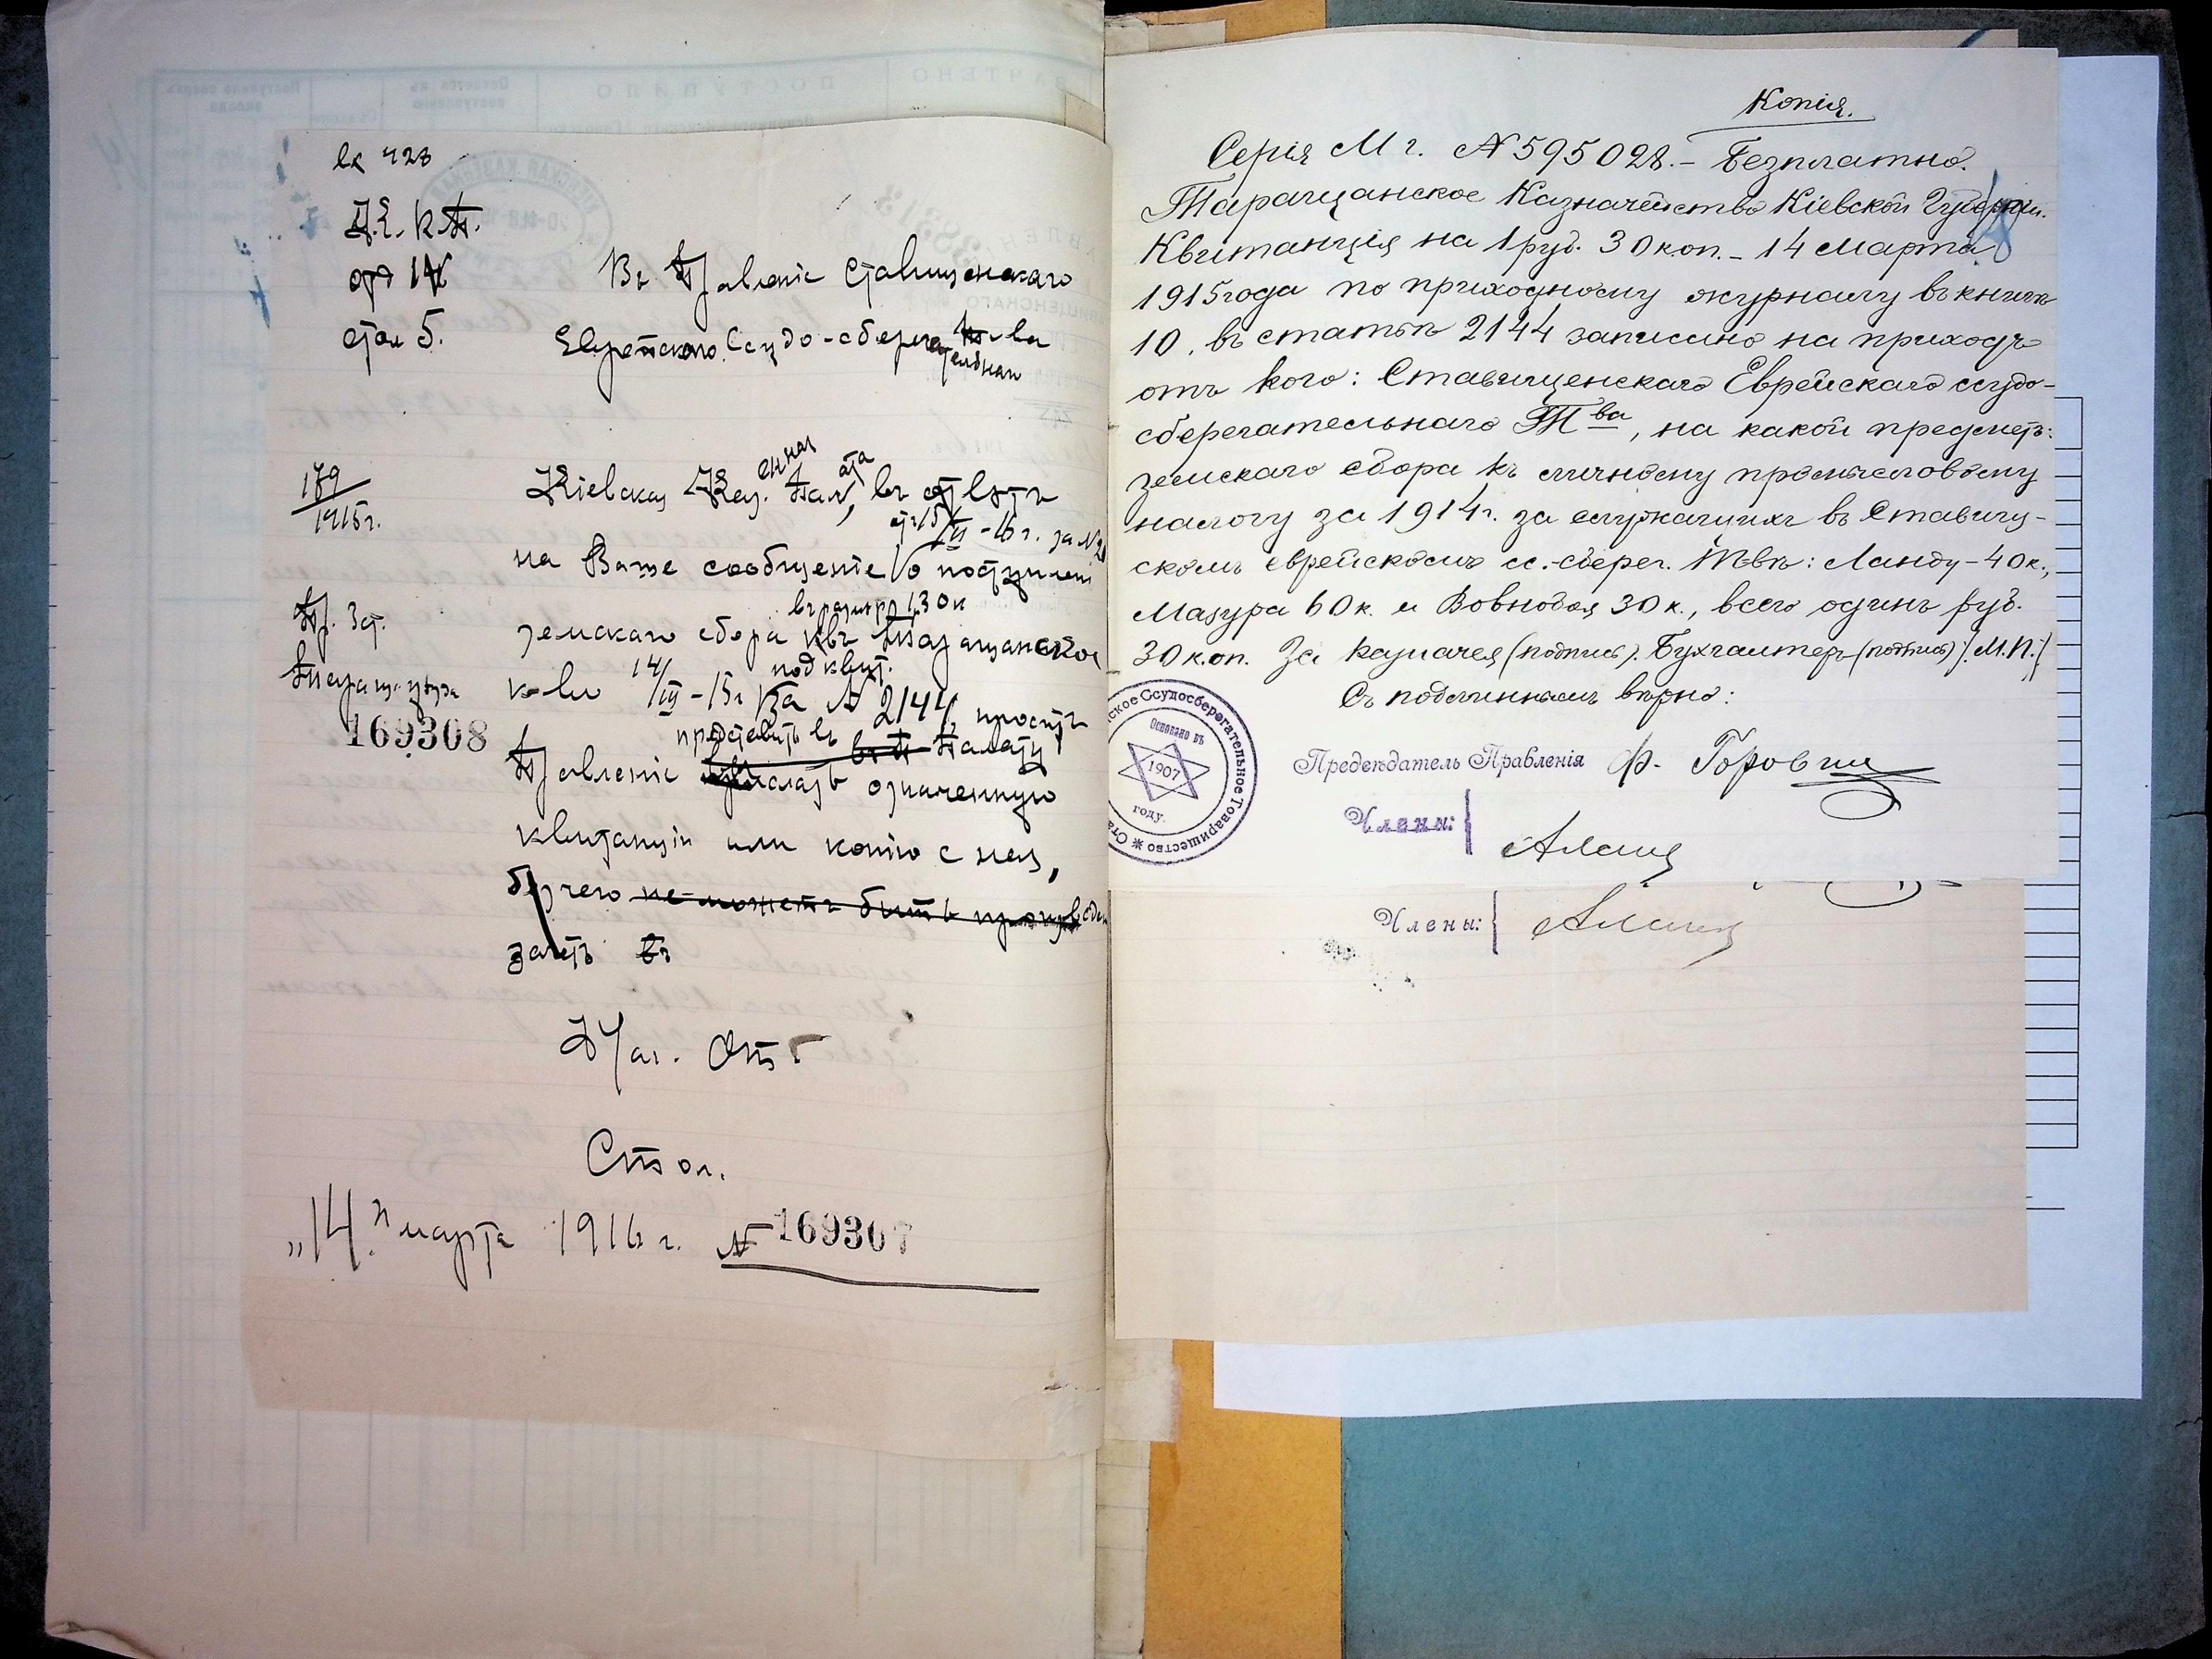 вх 428
К.П.
отд IV
стол 5.
Въ Правленіе Ставищенскаго
Еврейскаго Ссудо-сберега
тельнаго Т-ва
179
1915г.
Кіевская Каз. енная Пал, ата въ отвѣтъ
на Ваше сообщеніе о поступленіи
отъ 15/III-16 г. за №
земскаго сбора въ Таращанское
въ размѣрѣ 1,30 к
к-во 14/III-15г за № 2144, проситъ
под квит.
Правленіе выслать означенную
представить въ Палату
квитанцію или копію с нея,
без чего не можетъ быть произведен
зачетъ въ
Пр. Зст.
Таращ. уѣзда
169308
Нач. Отд
Стол.
„14" марта 1916 г. № 169307
Копія.
Серія М г. № 595028.- Безплатно.
Таращанское Казначейство Кіевской Губерніи.
Квитанція на 1 руб. 30 коп. - 14 Марта
1915 года по приходному журналу въ книгѣ
10, въ статьѣ 2144 записано на приходъ
отъ кого: Ставищенскаго Еврейскаго ссудо-
сберегательнаго Т ва, на какой предметъ:
земскаго сбора къ личному промысловому
налогу за 1914 г. за служащихъ въ Ставищ-
скомъ еврейскомъ сс.-сберег. Т-вѣ: Ланду - 40 к.,
Мазура 60 к. и Вовнобоя 30 к., всего одинъ руб.
30 коп. За казначея (подпись). Бухгалтеръ (подпись) /М.П./
Съ подлиннымъ вѣрно:
ское Ссудосберегательное Товарищество * Ста
Основано въ
1907
году.
Предсѣдатель Правленія Ф. Горовиц
Члены:
Члены: